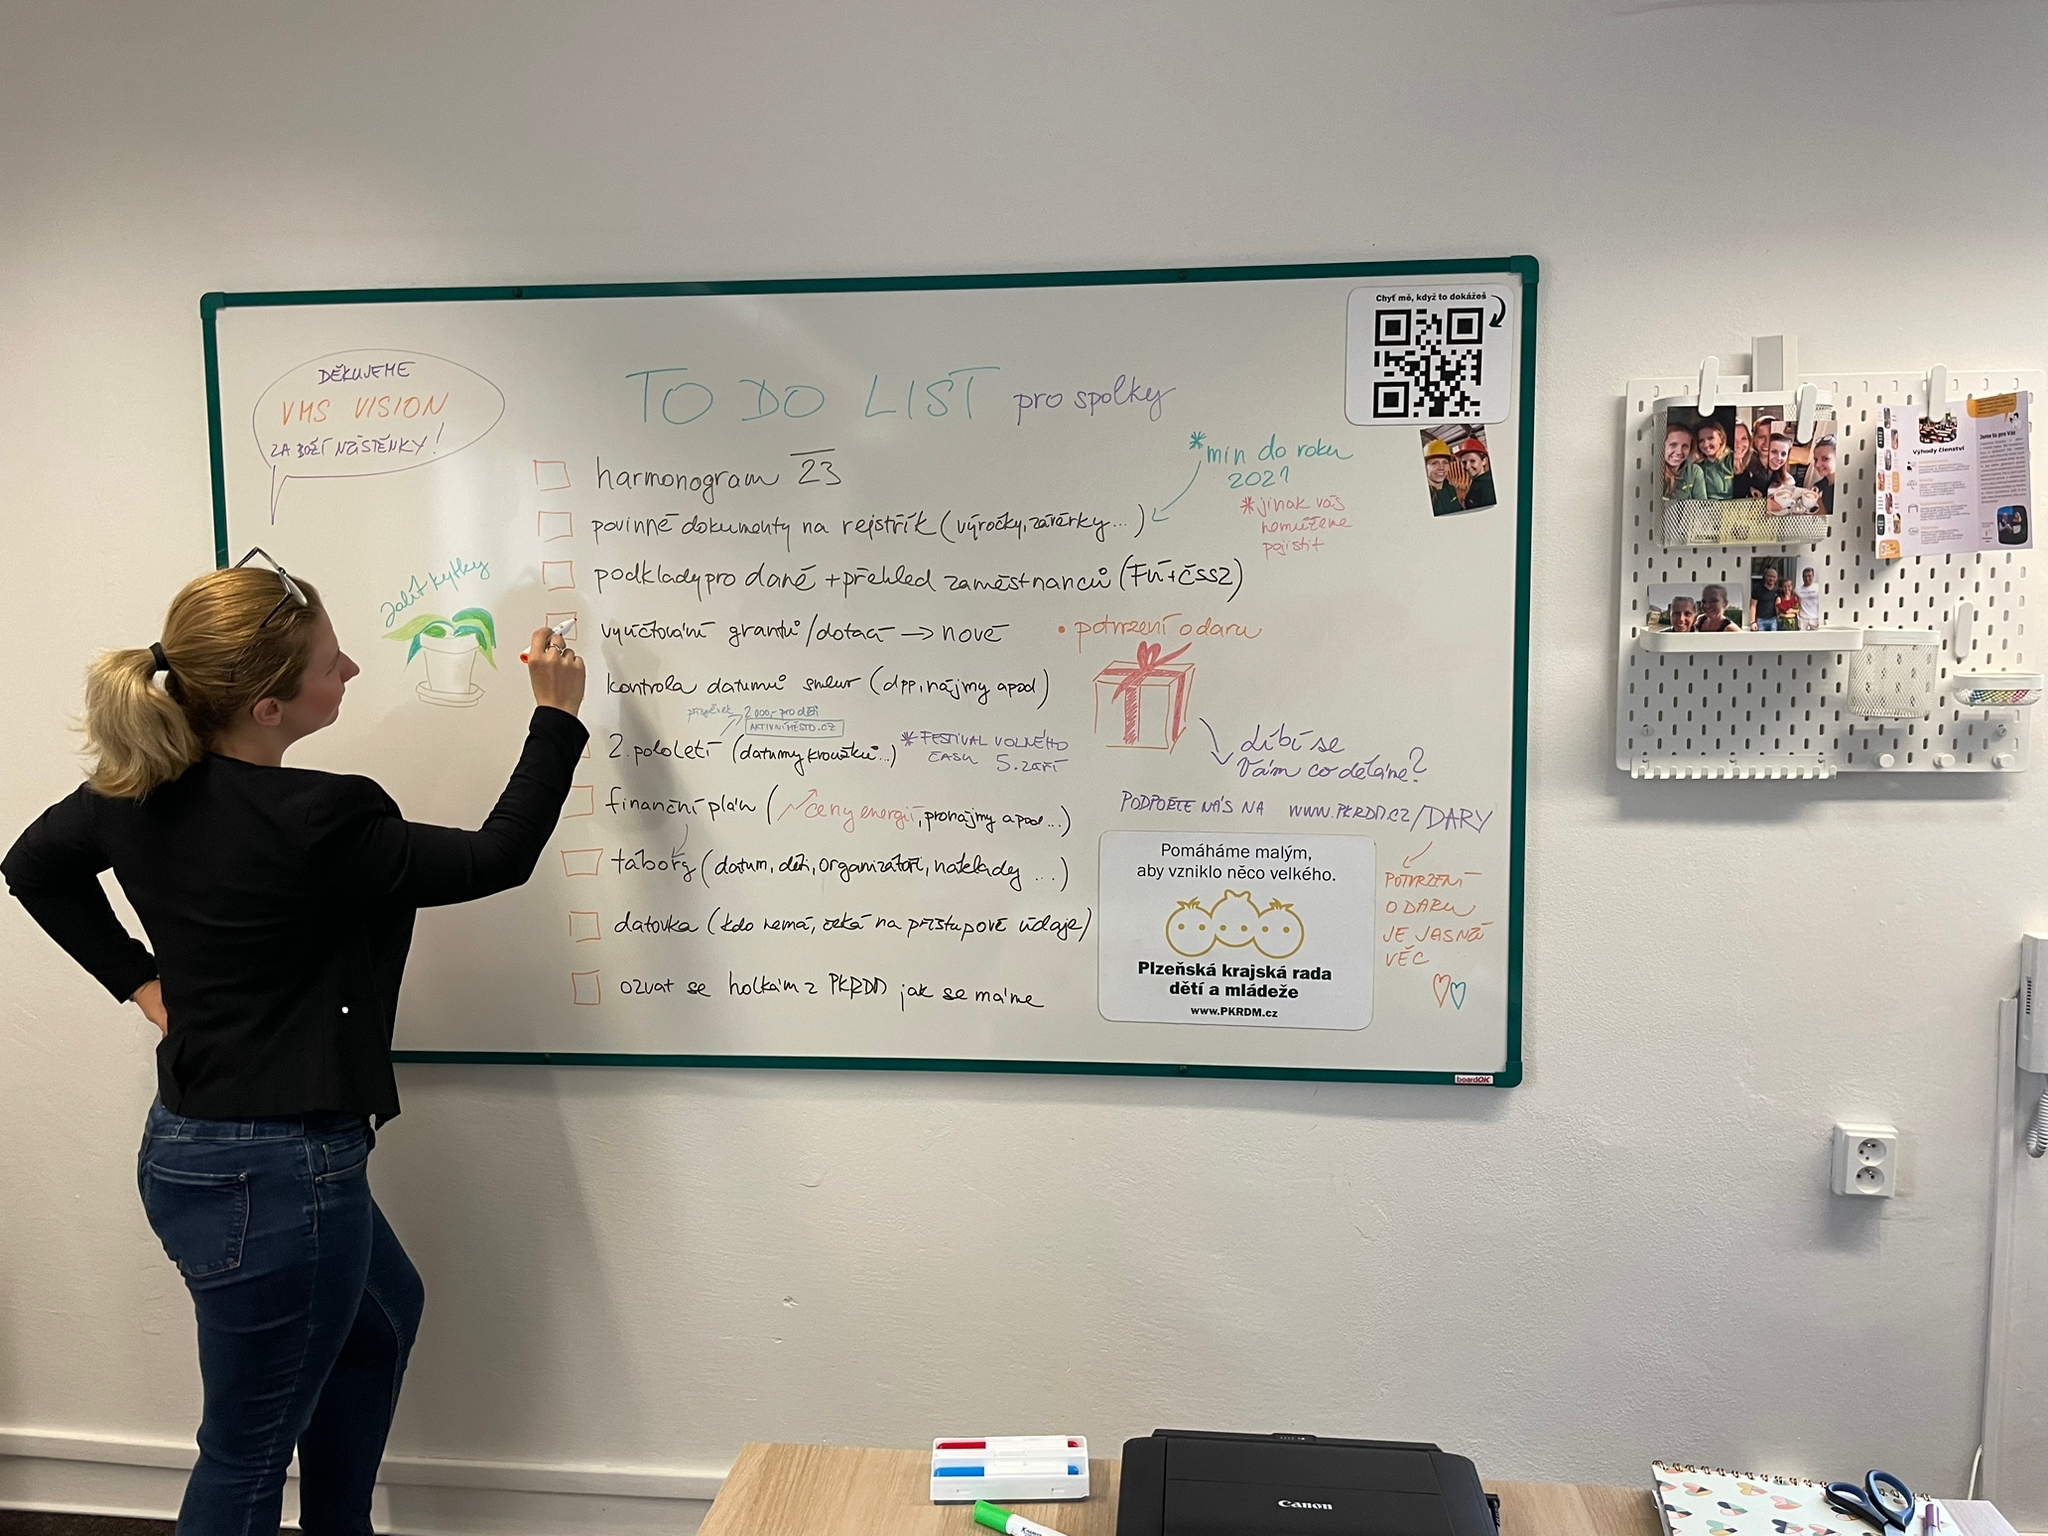 DĚKUJEME
VMS VISION
ZA BOŽÍ NÁSTĚNKY!
zalít kytky
TO DO LIST pro spolky
harmonogram 23
povinné dokumenty na rejstřík (výročky, závěrky...)
* min do roku
2021
* jinak vás
nemůžeme
pojistit
podklady pro daně + přehled zaměstnanců (FÚ + ČSSZ)
vyúčtování grantů/dotací → nové
• potvrzení o daru
kontrola datumů smluv (dpp, nájmy apod)
příspěvek 2000,- pro děti
AKTIVNÍMĚSTO.CZ
2. pololetí (datumy kroužků...)
* FESTIVAL VOLNÉHO
ČASU 5. ZÁŘÍ
finanční plán (ceny energií, pronájmy apod...)
tábory (datum, děti, organizátoři, náklady ...)
datovka (kdo nemá, čeká na přístupové údaje)
ozvat se holkám z PKRDM jak se máme
Líbí se
Vám co děláme?
PODPOŘTE NÁS NA WWW.PKRDM.CZ/DARY
POTVRZENÍ
O DARU
JE JASNÁ
VĚC
Chyť mě, když to dokážeš
Pomáháme malým,
aby vzniklo něco velkého.
Plzeňská krajská rada
dětí a mládeže
www.PKRDM.cz
boardOK
Výhody členství
Jsme tu pro Vás
Canon